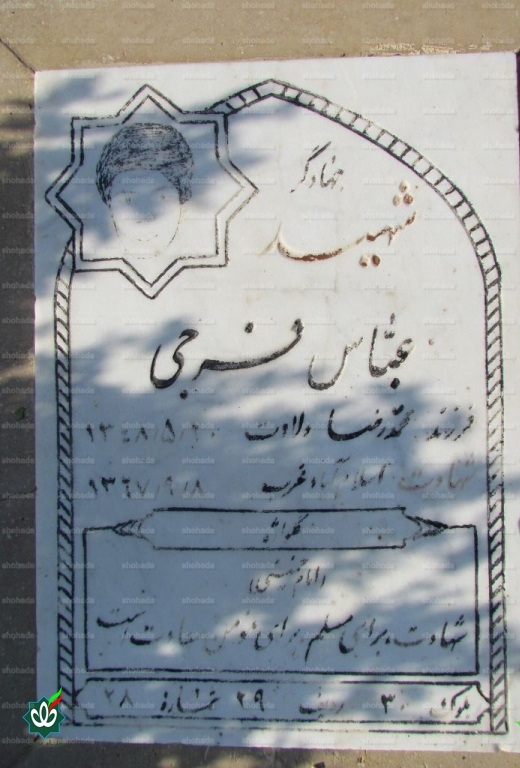 جهادگر
شهید
عباس فرجی
فرزند: محمدرضا ولادت ۱۳۴۸/۵/۲۰
شهادت: اسلام آباد غرب ۱۳۶۷/۹/۸
گلواژه
(امام خمینی)
شهادت برای مسلم برای مؤمن سعادت است
بلوک ۳۰ ردیف ۲۹ شماره ۲۸